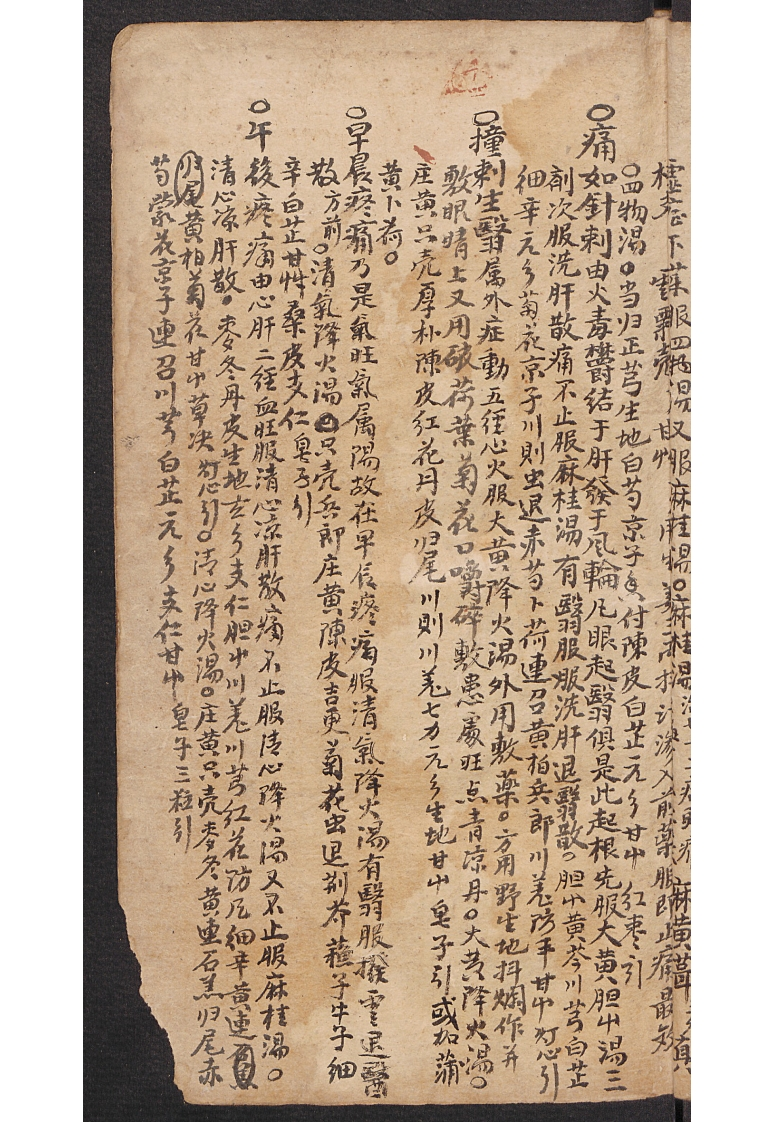 四物湯。当归正芎生地白芍京子 付陳皮白芷元乡甘屮 红枣引
○痛如針刺由火毒欝结于肝發于风輪凡眼起翳俱是此起根先服大黄胆屮湯三
劑次服洗肝散痛不止服麻桂湯有翳服服洗肝退翳散。胆屮黄芩川芎白芷
細辛元乡菊花京子川則虫退赤芍卜荷連召黄柏兵郎川羌防丰甘屮灯心引
○撞刺生翳属外症動五经心火服大黄降火湯外用敷薬。方用野生地抖爛作并
敷眼睛上又用破荷葉菊花口嚼碎敷患處旺点青凉丹。大黄降火湯。
庄黄只壳厚朴陳皮红花丹皮归尾川則川羌七力元乡生地甘屮皂子引或加蒲
黄卜荷。
○早晨疼痛乃是氣旺氣属陽故在早晨疼痛服清氣降火湯有翳服撥雲退翳
散方前。清氣降火湯 只壳兵郎庄黄陳皮吉更菊花虫退荆芥蘓子牛子細
辛白芷甘屮桑皮支仁皂子引
○午後疼痛由心肝二经血旺服清心凉肝散痛不止服清心降火湯又不止服麻桂湯。
清心凉肝散。麦冬丹皮生地玄乡支仁胆屮川羌川芎红花防风細辛黄連
归尾黄柏菊花甘屮草决灯心引。清心降火湯。庄黄只壳麦冬黄連石羔归尾赤
芍蒙花京子連召川芎白芷元乡支仁甘屮皂子三粒引